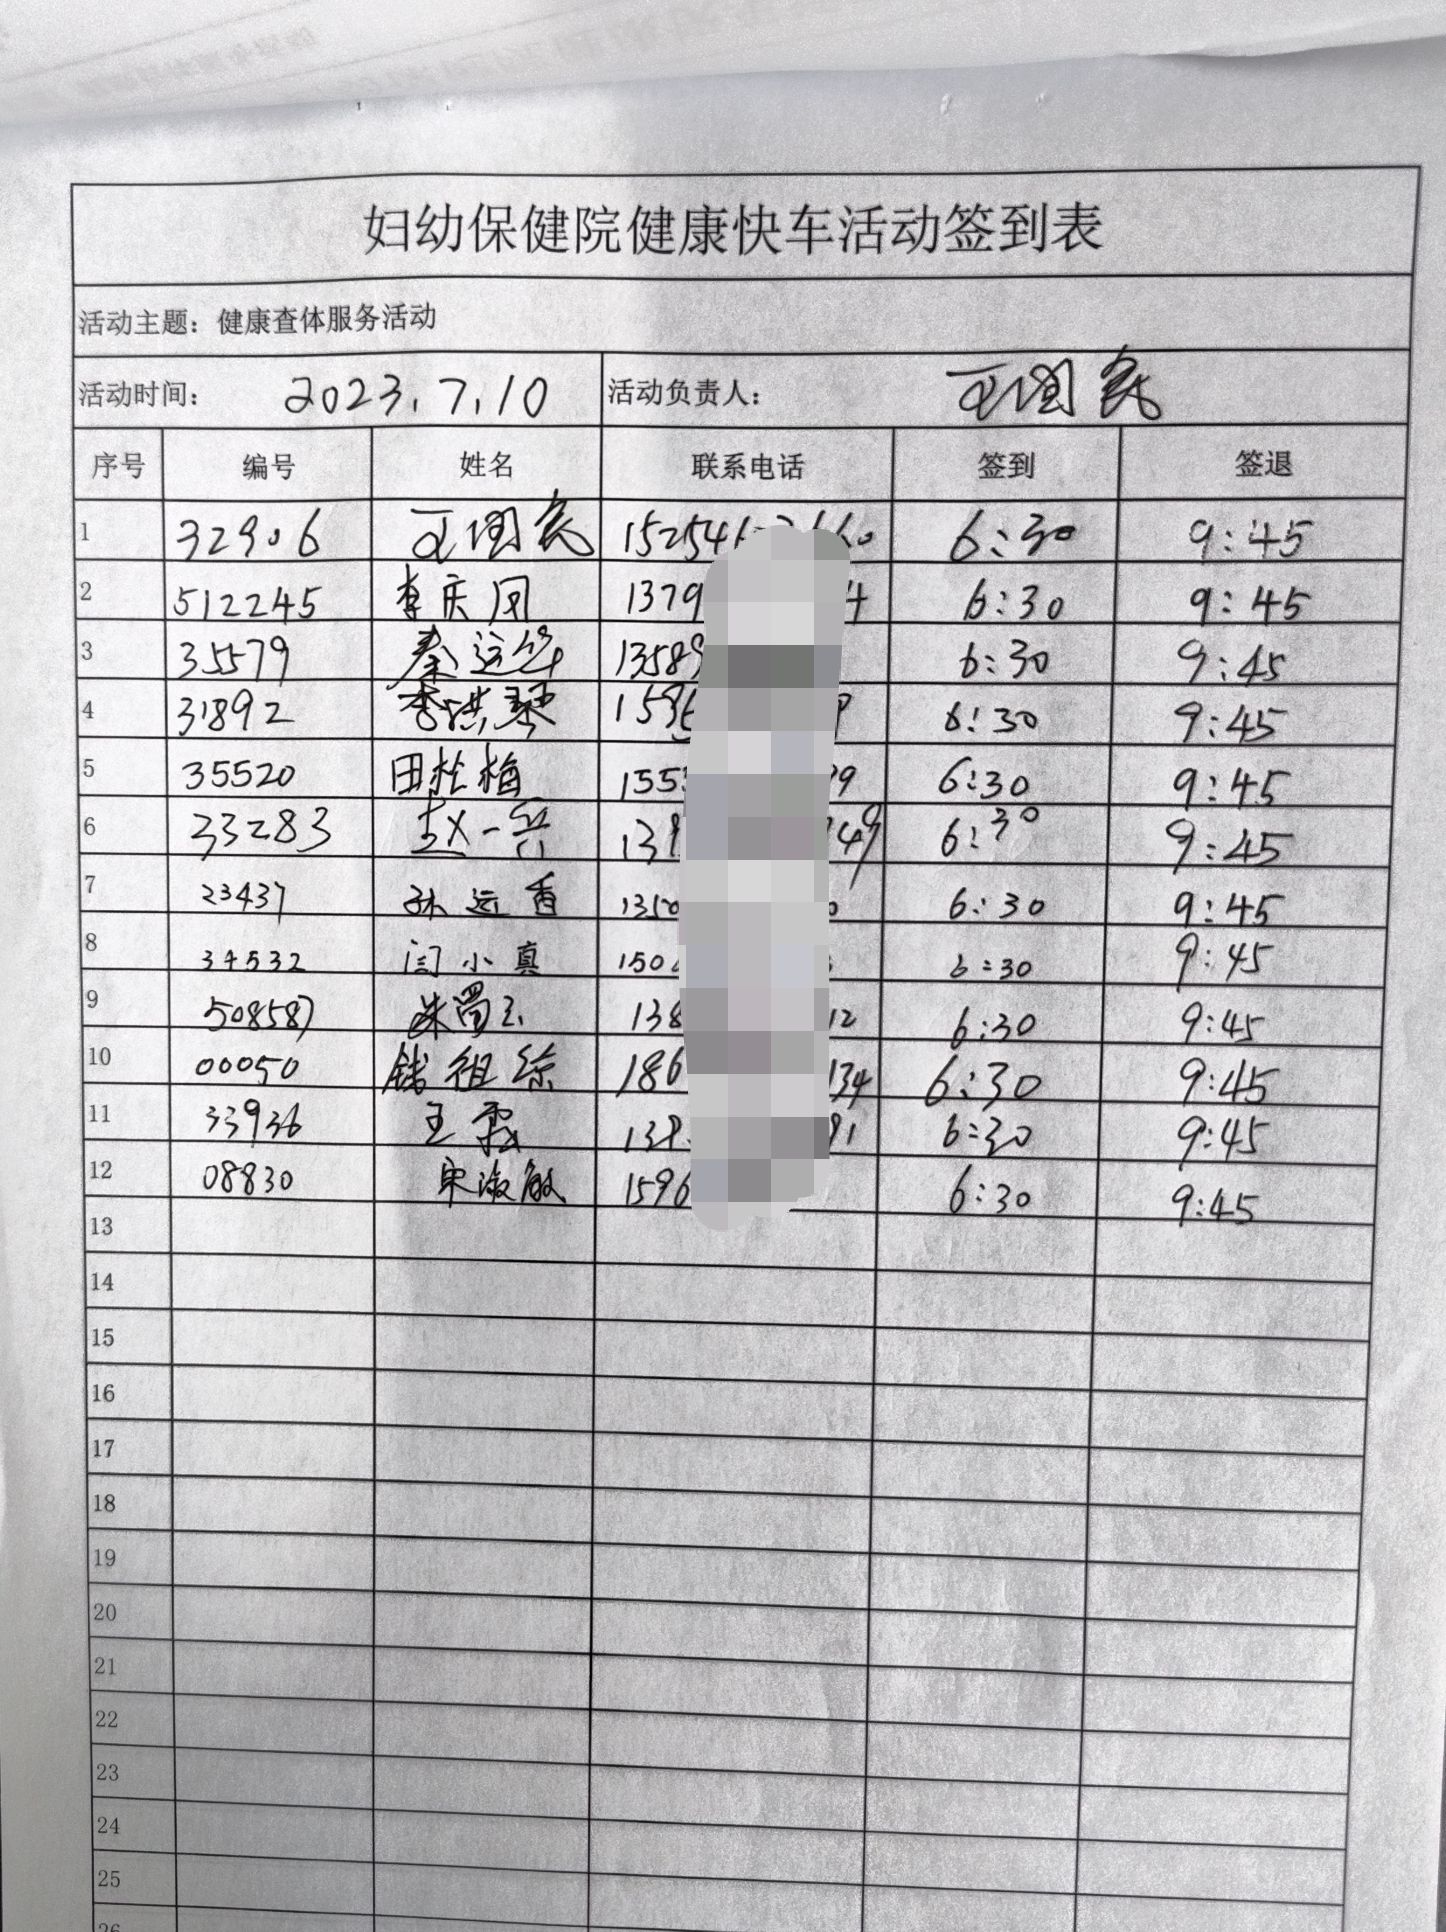 妇幼保健院健康快车活动签到表
活动主题：健康查体服务活动
活动时间： 2023.7.10 活动负责人： 王国家
序号 编号 姓名 联系电话 签到 签退
1 32906 王国家 6:30 9:45
2 512245 李庆凤 1379 4 6:30 9:45
3 35579 秦运华 13589 6:30 9:45
4 31892 李洪琴 6:30 9:45
5 35520 田桂梅 155 99 6:30 9:45
6 33283 赵一兵 13 49 6:30 9:45
7 23437 孙远香 1350 0 6:30 9:45
8 34532 闫小真 150 6:30 9:45
9 508587 朱 玉 138 12 6:30 9:45
10 00050 钱祖综 186 134 6:30 9:45
11 33936 王 138 91 6:30 9:45
12 08830 宋淑敏 1596 6:30 9:45
13
14
15
16
17
18
19
20
21
22
23
24
25
26